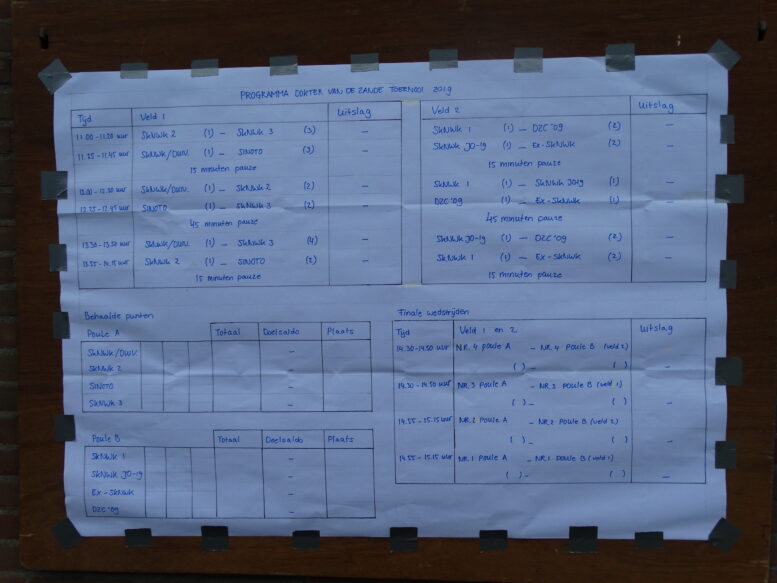 PROGRAMMA DOKTER VAN DE ZANDE TOERNOOI 2019
Tijd Veld 1 Uitslag
11.00-11.20 uur SKNWK 2 (1) - SKNWK 3 (3) -
11.25-11.45 uur SKNWK/DWV. (1) - SINOTO (3) -
15 minuten pauze
12.00-12.20 uur SKNWK/DWV. (1) - SKNWK 2 (2) -
12.25-12.45 uur SINOTO (1) - SKNWK 3 (2) -
45 minuten pauze
13.30-13.50 uur SKNWK/DWV. (1) - SKNWK 3 (4) -
13.55-14.15 uur SKNWK 2 (1) - SINOTO (2) -
15 minuten pauze
Veld 2 Uitslag
SKNWK 1 (1) - DZC '09 (2) -
SKNWK JO-19 (1) - Ex-SKNWK (2) -
15 minuten pauze
SKNWK 1 (1) - SKNWK JO19 (1) -
DZC '09 (1) - Ex-SKNWK (1) -
45 minuten pauze
SKNWK JO-19 (1) - DZC '09 (2) -
SKNWK 1 (1) - Ex-SKNWK (2) -
15 minuten pauze
Behaalde punten
Poule A Totaal Doelsaldo Plaats
SKNWK/DWV. -
SKNWK 2 -
SINOTO -
SKNWK 3 -
Poule B Totaal Doelsaldo Plaats
SKNWK 1 -
SKNWK JO-19 -
Ex-SKNWK -
DZC '09 -
Finale wedstrijden
Tijd Veld 1 en 2 Uitslag
14.30-14.50 uur NR. 4 Poule A - NR. 4 Poule B (veld 2)
( ) - ( ) -
14.30-14.50 uur NR. 3 Poule A - NR. 3 Poule B (veld 1)
( ) - ( ) -
14.55-15.15 uur NR. 2 Poule A - NR. 2 Poule B (veld 2)
( ) - ( ) -
14.55-15.15 uur NR. 1 Poule A - NR. 1 Poule B (veld 1)
( ) - ( ) -